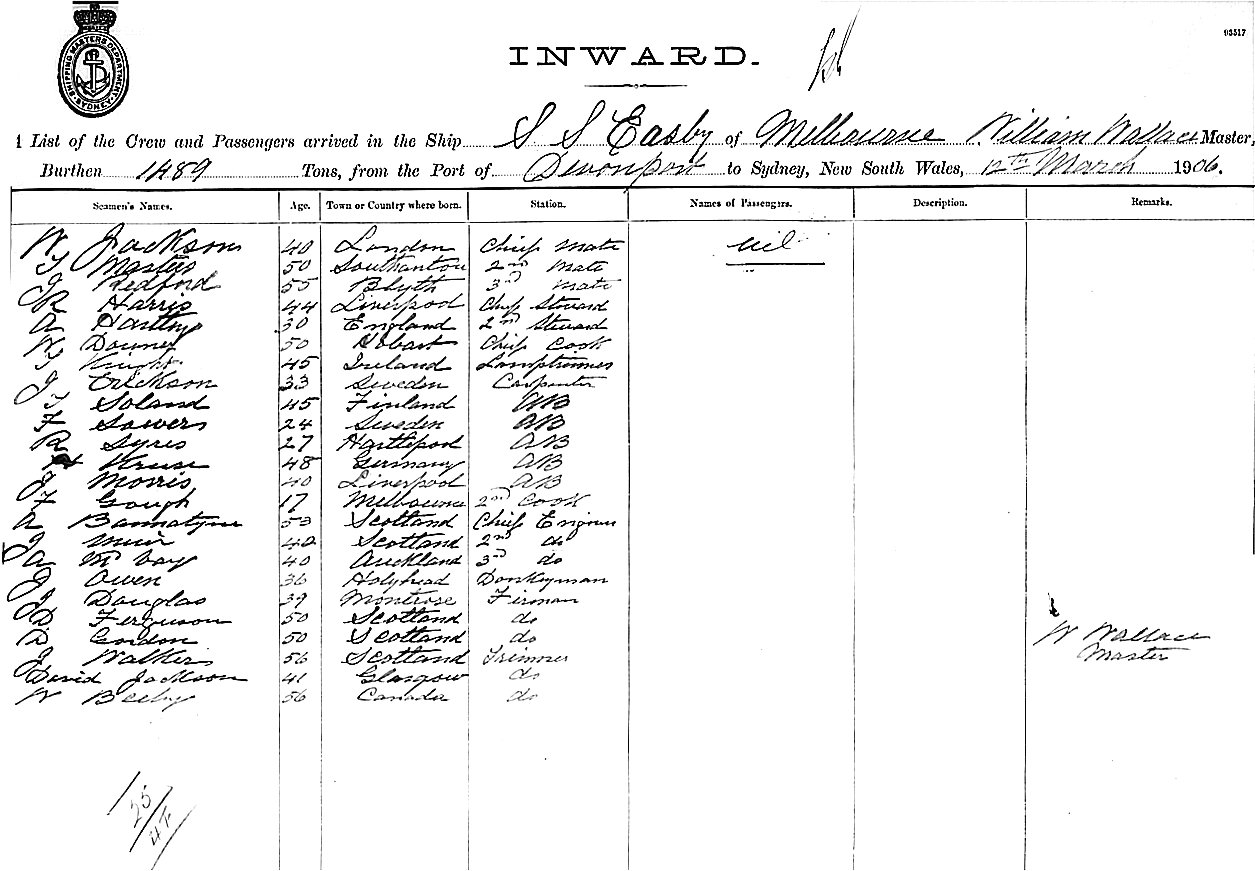 SHIPPING MASTERS DEPARTMENT SYDNEY
03517
INWARD.
A List of the Crew and Passengers arrived in the Ship S S Easby of Melbourne William Wallace Master,
Burthen 1489 Tons, from the Port of Devonport to Sydney, New South Wales, 12th March 1906.
Seamen's Names. Age. Town or Country where born. Station. Names of Passengers. Description. Remarks.
W Jackson 40 London Chief Mate nil
T Masters 50 Southanton 2nd Mate
J Redford 55 Blyth 3rd Mate
R Harris 44 Liverpool Chief Steward
A Hartley 30 England 2nd Steward
W Downey 50 Hobart Chief Cook
T Knight 45 Ireland Lamptrimmer
J Erickson 33 Sweden Carpenter
T Soland 45 Finland AB
F Sowers 24 Sweden AB
R Syres 27 Hartlepool AB
Kruse 48 Germany AB
J Morris 40 Liverpool AB
F Gough 17 Melbourne 2nd Cook
A Bannatyne 53 Scotland Chief Engineer
J Muir 42 Scotland 2nd do
A McVay 40 Auckland 3rd do
J Owen 36 Holyhead Donkeyman
J Douglas 39 Montrose Firman
D Ferguson 50 Scotland do
D Gordon 50 Scotland do W Wallace
J Walker 56 Scotland Trimmer Master
David Jackson 41 Glasgow do
W Beeby 56 Canada do
25